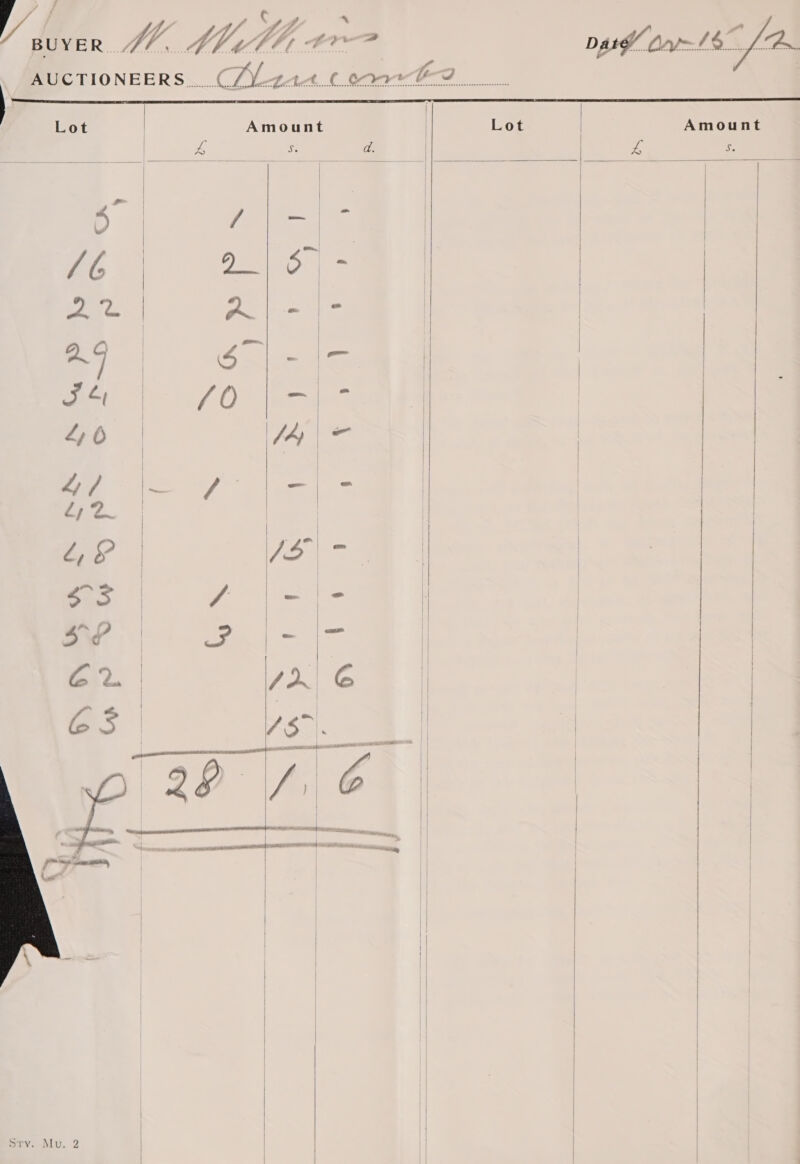 BUYER W. Wilkins Date Nov 15 / 2
AUCTIONEERS
Lot Amount Lot Amount
£ s. d. £ s.
5 1 - -
16 2 5 -
22 2 - -
29 5 - -
34 10 - -
40 14 -
41 - 1 - -
42
48 15 -
53 1 - -
58 3 - -
62 12 6
63 15 .
£ 28 1 6
Sty. Mu. 2